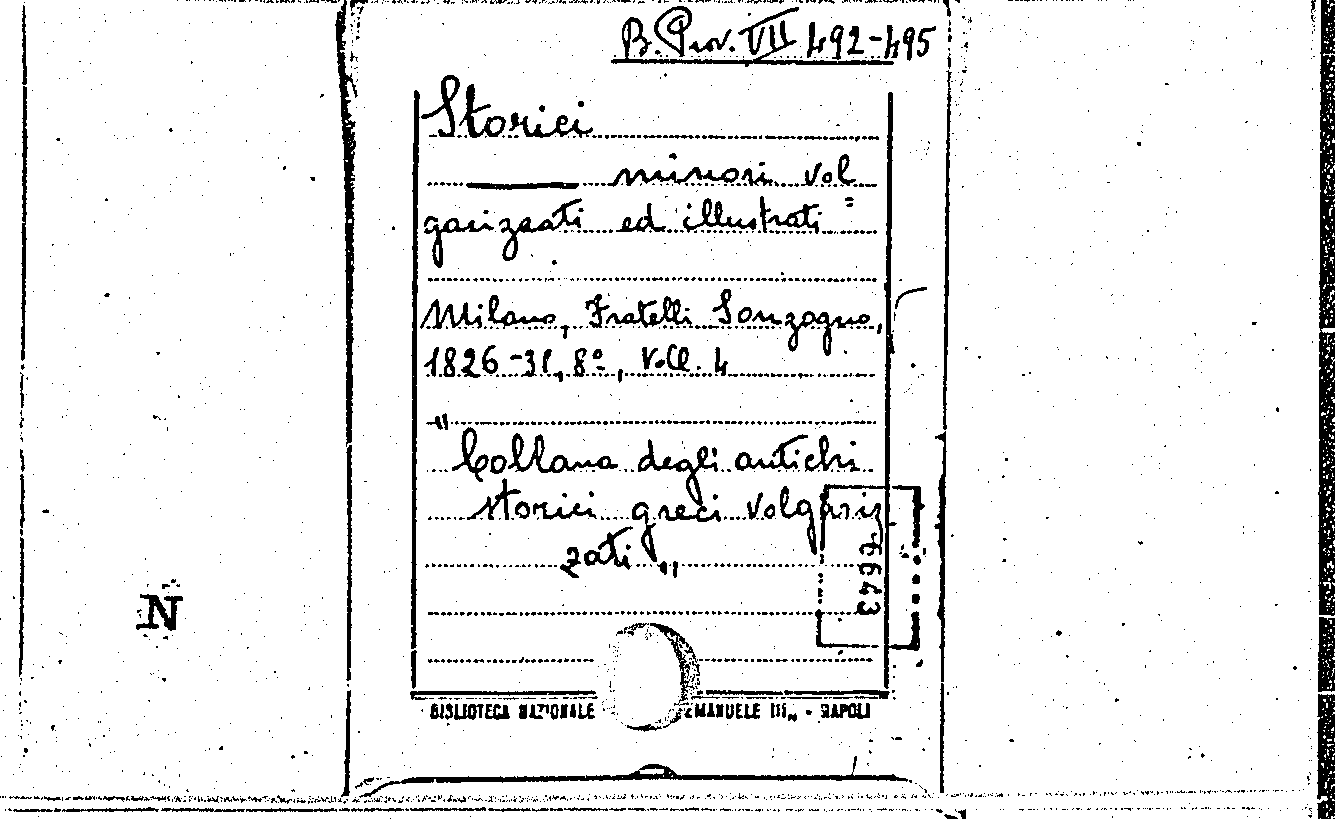 B. Prov. VII 492-495
Storici
——— minori vol=
garizzati ed illustrati
Milano, Fratelli Sonzogno,
1826-31, 8°., Voll. 4
"Collana degli antichi
storici greci volgariz
zati"
6643
N
BIBLIOTECA NAZIONALE EMANUELE III„ - NAPOLI